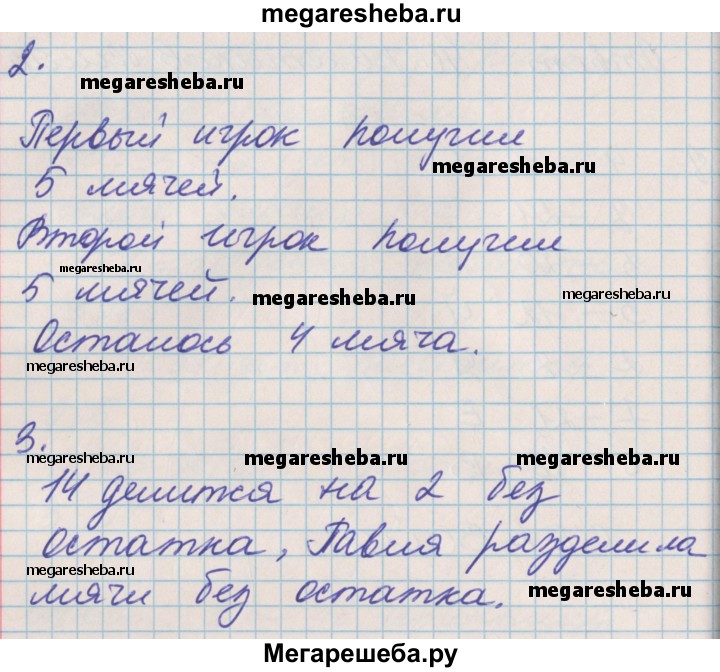 megaresheba.ru
2.
megaresheba.ru
Первый игрок получил
megaresheba.ru
megaresheba.ru
5 мячей.
Второй игрок получил
megaresheba.ru
5 мячей.
megaresheba.ru
megaresheba.ru
Осталось 4 мяча.
megaresheba.ru
3.
megaresheba.ru
megaresheba.ru
megaresheba.ru
14 делится на 2 без
остатка, Павля разделила
megaresheba.ru
мячи без остатка.
megaresheba.ru
Мегарешеба.ру